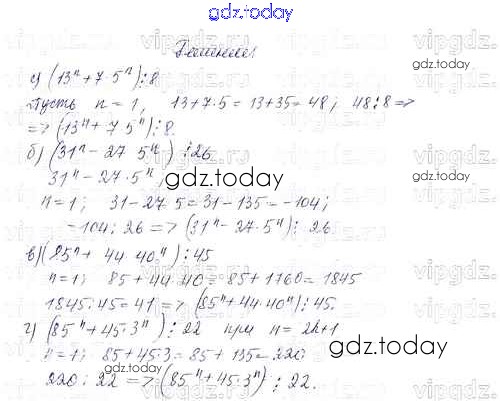 gdz.today
Решение.
а) (13ⁿ + 7 · 5ⁿ) ⋮ 8
Пусть n = 1, 13 + 7 · 5 = 13 + 35 = 48; 48 ⋮ 8 =>
=> (13ⁿ + 7 5ⁿ) ⋮ 8.
б) (31ⁿ - 27 5ⁿ) ⋮ 26
31ⁿ - 27 · 5ⁿ
n = 1; 31 - 27 · 5 = 31 - 135 = -104;
-104 ⋮ 26 => (31ⁿ - 27 · 5ⁿ) ⋮ 26
в) (85ⁿ + 44 · 40ⁿ) ⋮ 45
n = 1; 85 + 44 · 40 = 85 + 1760 = 1845
1845 : 45 = 41 => (85ⁿ + 44 · 40ⁿ) ⋮ 45.
г) (85ⁿ + 45 · 3ⁿ) ⋮ 22 при n = 2k+1
n = 1; 85 + 45 · 3 = 85 + 135 = 220;
220 ⋮ 22 => (85ⁿ + 45 · 3ⁿ) ⋮ 22.
gdz.today
gdz.today
gdz.today
gdz.today
gdz.today